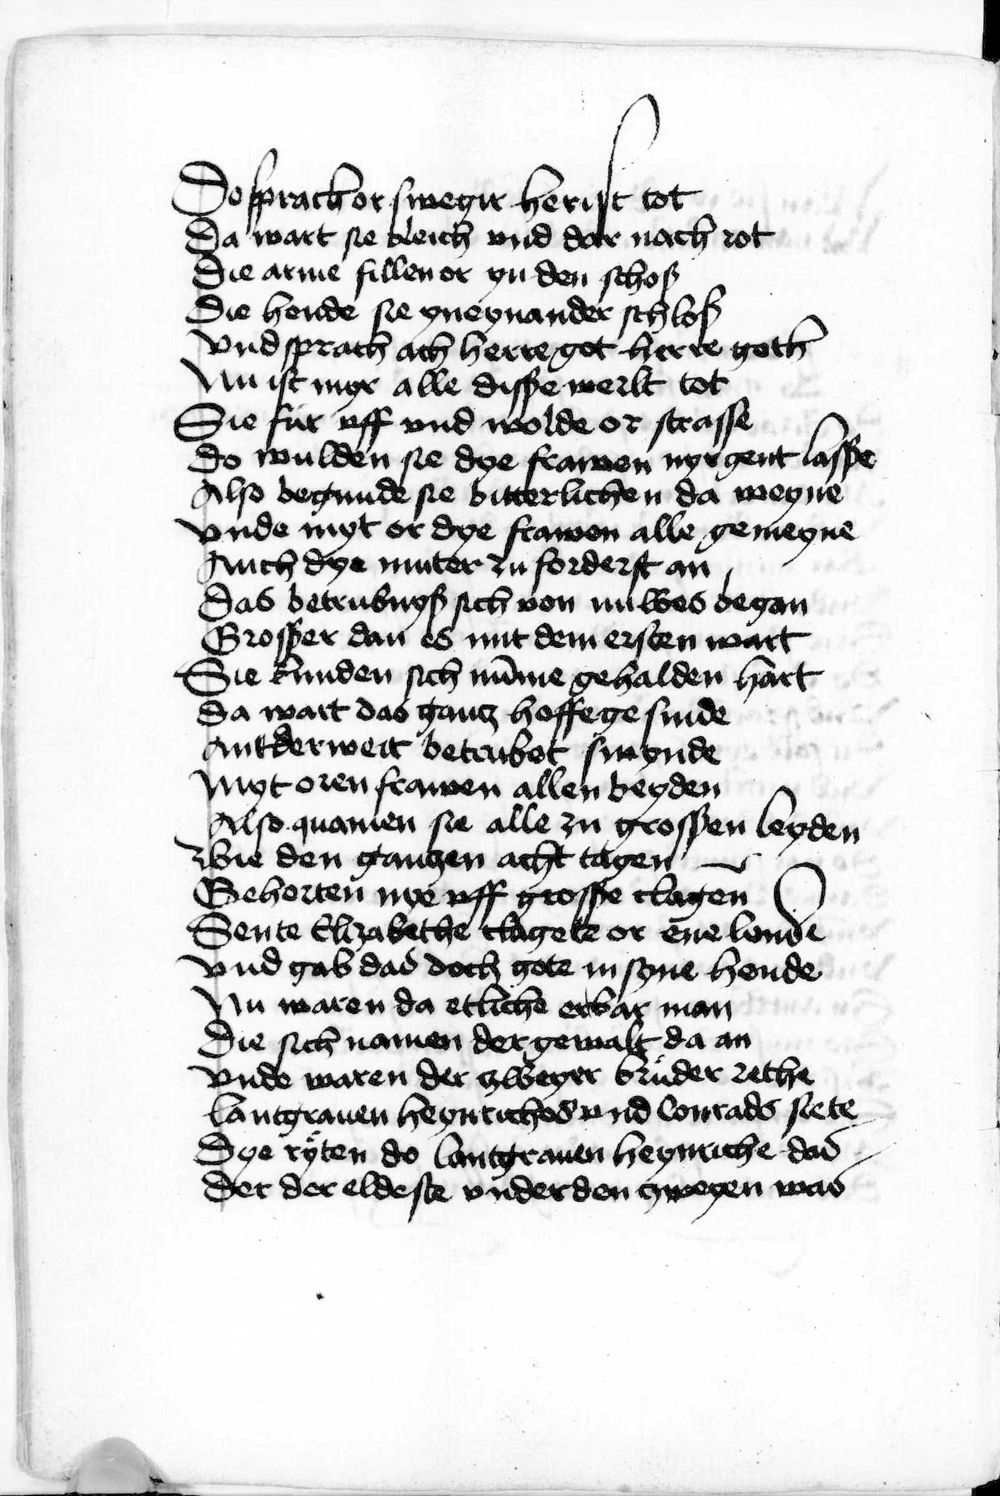 Do sprach or swegir her ist tot
Da wart sie bleich vnd dar nach rot
Die arme fillen or yn den schoß
Die hende sie yneynander schloß
Vnd sprach ach herre got herre goth
Nu ist myr alle disse werlt tot
Sie fur vff vnd wolde or strasse
Do wulden sie dye frawen nyrgent lasse
Also begunde sie bitterlichen da weyne
Vnde myt or dye frawen alle gemeyne
Auch dye muter zu forderst an
Das betrubnyß sich von nuwes began
Grosser dan es mit dem ersten wart
Sie kunden sich nüme gehalden hart
Da wart das gantz hoffegesinde
Anderweit betrubet swynde
Myt oren frawen allen beyden
Also quamen sie alle zu grossen leyden
Wie den gantzen acht tagen
Gehorten nye vff grosse clagen
Sente Elizabethe clagete or ene lende
Vnd gab das doch gote in syne hende
Nu waren da etliche erbar man
Die sich namen der gewalt da an
Vnde waren der zweyer brůder rethe
Lantgrauen heynriches vnd Conrads stete
Dye ryten do lantgrauen heynriche das
Der der eldeste vnder den zweyen was